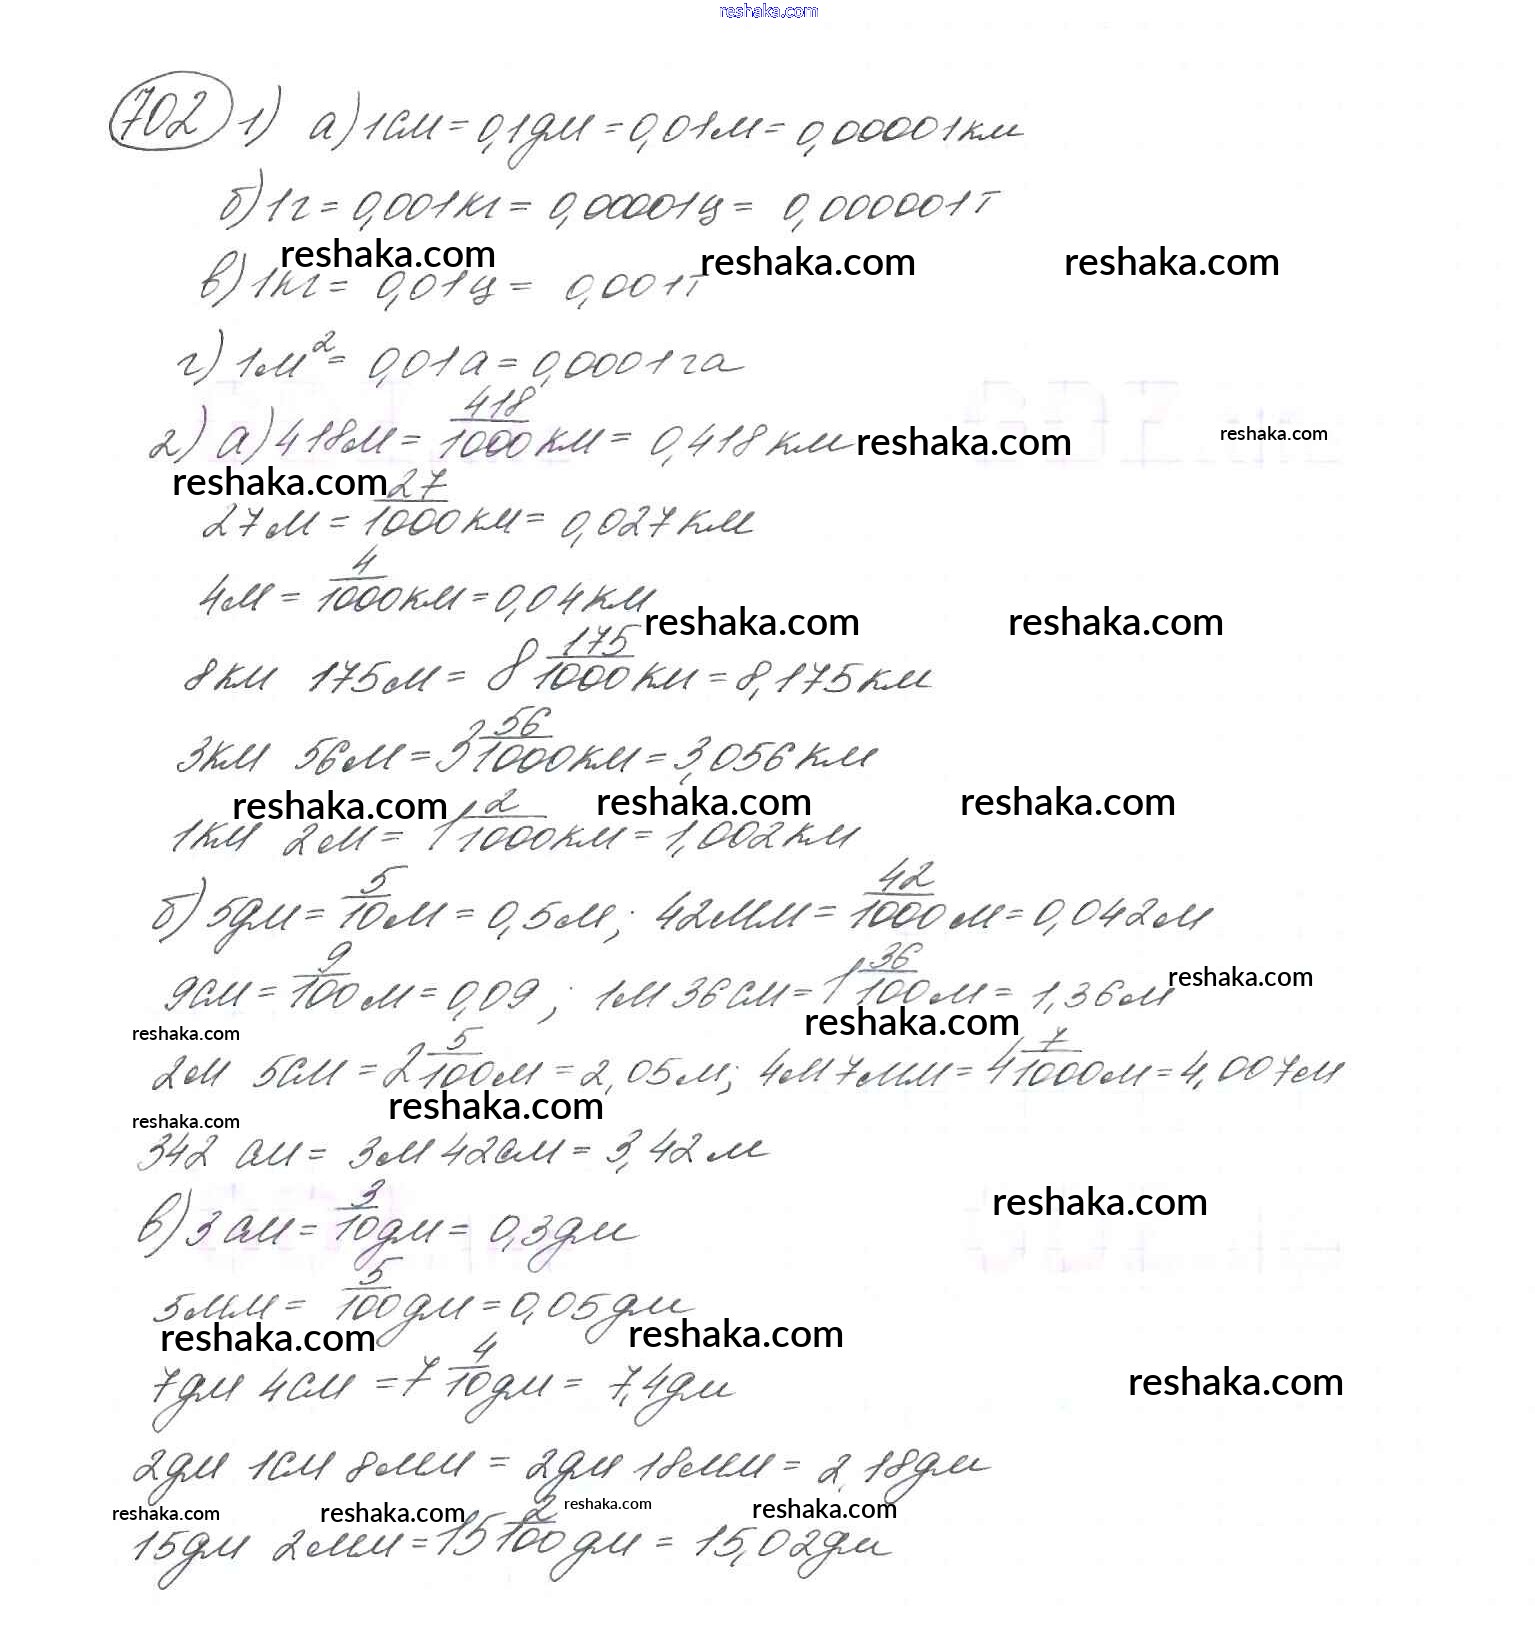 reshaka.com
702 1) а) 1см = 0,1дм = 0,01м = 0,00001км
б) 1г = 0,001кг = 0,00001ц = 0,000001т
reshaka.com reshaka.com reshaka.com
в) 1кг = 0,01ц = 0,001т
г) 1м² = 0,01а = 0,0001га
2) а) 418м = 418/1000 км = 0,418км
reshaka.com reshaka.com
reshaka.com
27м = 27/1000 км = 0,027км
4м = 4/1000 км = 0,04км
reshaka.com reshaka.com
8км 175м = 8 175/1000 км = 8,175км
3км 56м = 3 56/1000 км = 3,056км
reshaka.com reshaka.com reshaka.com
1км 2м = 1 2/1000 км = 1,002км
б) 5дм = 5/10 м = 0,5м; 42мм = 42/1000 м = 0,042м
9см = 9/100 м = 0,09; 1м 36см = 1 36/100 м = 1,36м
reshaka.com
reshaka.com reshaka.com
2м 5см = 2 5/100 м = 2,05м; 4м 7мм = 4 7/1000 м = 4,007м
reshaka.com reshaka.com
342 см = 3м 42см = 3,42м
reshaka.com
в) 3см = 3/10 дм = 0,3дм
5мм = 5/100 дм = 0,05дм
reshaka.com reshaka.com
7дм 4см = 7 4/10 дм = 7,4дм
reshaka.com
2дм 1см 8мм = 2дм 18мм = 2,18дм
reshaka.com reshaka.com reshaka.com reshaka.com
15дм 2мм = 15 2/100 дм = 15,02дм